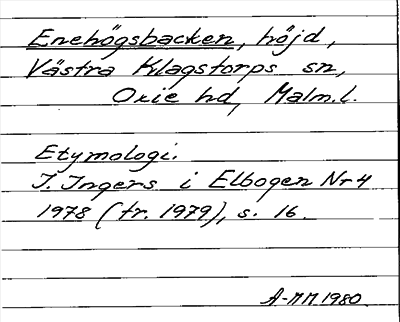 Enehögsbacken, höjd,
Västra Klagstorps sn,
Oxie hd, Malm.l.
Etymologi.
I. Ingers i Elbogen Nr 4
1978 (tr. 1979), s. 16.
A-MM.1980.